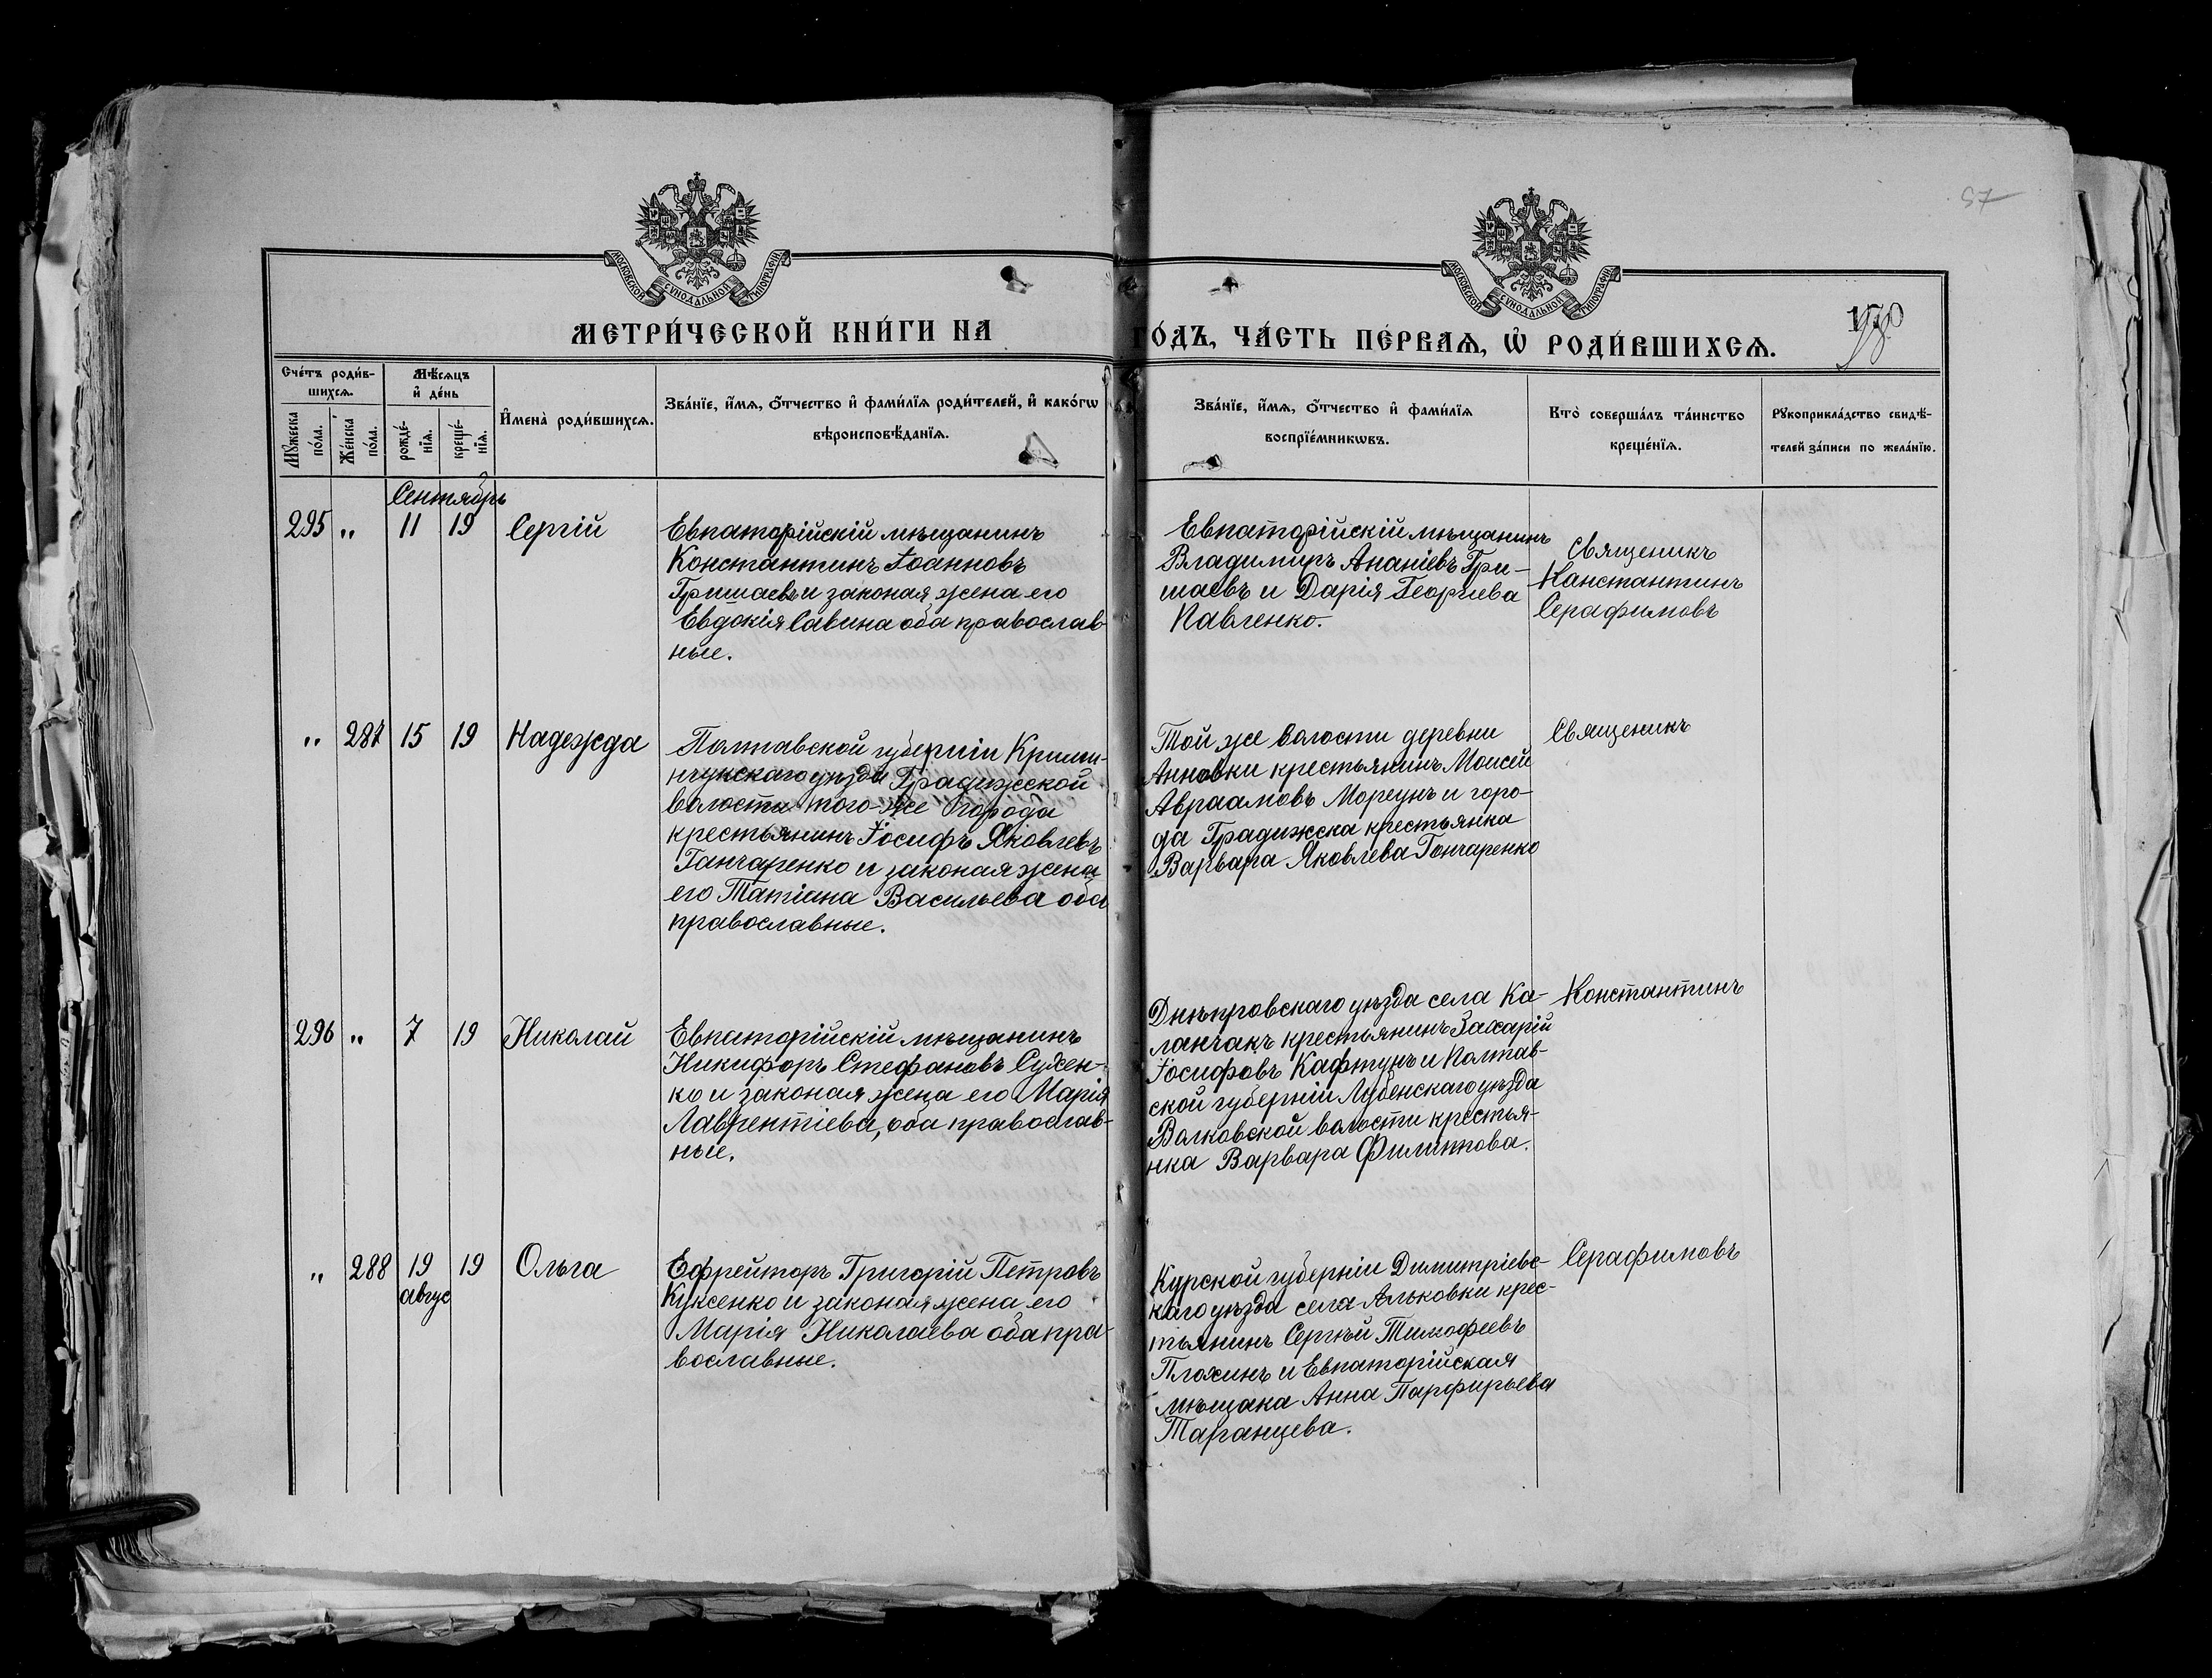 57
МОСКОВСКОЙ СУНОДАЛЬНОЙ ТИПОГРАФІИ
МОСКОВСКОЙ СУНОДАЛЬНОЙ ТИПОГРАФІИ
МЕТРИ́ЧЕСКОЙ КНИ́ГИ НА
ГО́ДЪ, ЧА́СТЬ ПЕ́РВАѦ, Ѡ҆ РОДИ́ВШИХСѦ.
Сче́тъ роди́в-
шихсѧ.
Мꙋ́жеска по́ла.
Же́нска по́ла.
Мѣ́сяцъ
и҆ де́нь
рожде́-
нїѧ.
креще́-
нїѧ.
И҆мена̀ роди́вшихсѧ.
Зва́нїе, и҆́мѧ, ѻ҆́тчество и҆ фами́лїѧ роди́телей, и҆ како́гѡ
вѣроисповѣ́данїѧ.
Зва́нїе, и҆́мѧ, ѻ҆́тчество и҆ фами́лїѧ
воспрїе́мникѡвъ.
Кто̀ соверша́лъ та́инство
креще́нїѧ.
Рꙋкоприкла́дство свидѣ́-
телей за́писи по жела́нїю.
Сентябрь
295 „ 11 19 Сергій
Евпаторійскій мѣщанинъ
Константинъ Іоанновъ
Гришаевъ и законая жена его
Евдокія Савина оба православ-
ные.
Евпаторійскій мѣщанинъ
Владимиръ Ананіевъ Гри-
шаевъ и Дарія Георгіева
Павленко.
Священикъ
Канстантинъ
Серафимовъ
„ 287 15 19 Надежда
Полтавской губерніи Креми-
нчукскаго уѣзда Градижской
волости того-же города
крестьянинъ Іосифъ Яковлевъ
Ганчаренко и законая жена
его Татіана Васильева оба
православные.
Той же волости деревни
Анновки крестьянинъ Моисей
Авраамовъ Моргунъ и горо-
да Градижска крестьянка
Варвара Яковлева Гончаренко
Священикъ
296 „ 7 19 Николай
Евпаторійскій мѣщанинъ
Никифоръ Стефановъ Сухен-
ко и законая жена его Марія
Лаврентіева, оба православ-
ные.
Днѣпровскаго уѣзда села Ка-
ланчакъ крестьянинъ Захарій
Іосифовъ Кафтунъ и Полтав-
ской губерніи Лубенскаго уѣзда
Волковской волости крестья-
нка Варвара Филиппова.
Константинъ
„ 288 19 19 Ольга
авгус
Ефрейторъ Григорій Петровъ
Куксенко и законая жена его
Марія Николаева оба пра-
вославные.
Курской губерніи Димитріевс-
каго уѣзда села Альковки крес-
тьянинъ Сергѣй Тимофеевъ
Плохинъ и Евпаторійская
мѣщака Анна Парфирьева
Таранцева.
Серафимовъ